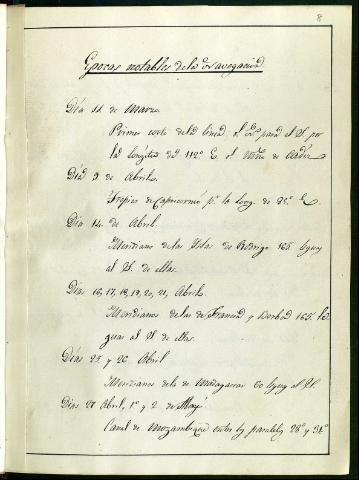 8
Epocas notables de la navegacion
Dia 11 de Marzo
Primer corte de la linea, el para el S. por
la longitud de 112° E. el de Cadiz
Dia 9 de Abril.
Tropico de Capricornio pr. la long. de 95° E
Dia 14 de Abril
Meridiano de las Islas de Rodrigo 165 leguas
al S. de ellas.
Dias 16, 17, 18, 19, 20, 21, Abril.
Meridianos de las de Francia y Borbon 165 le
guas al S. de ellas.
Dias 25 y 26 Abril
Meridianos de la de Madagascar 60 leguas al S.
Dias 27 Abril, 1° y 2 de Mayo
Canal de Mozambique entre los paralelos 28° y 31°